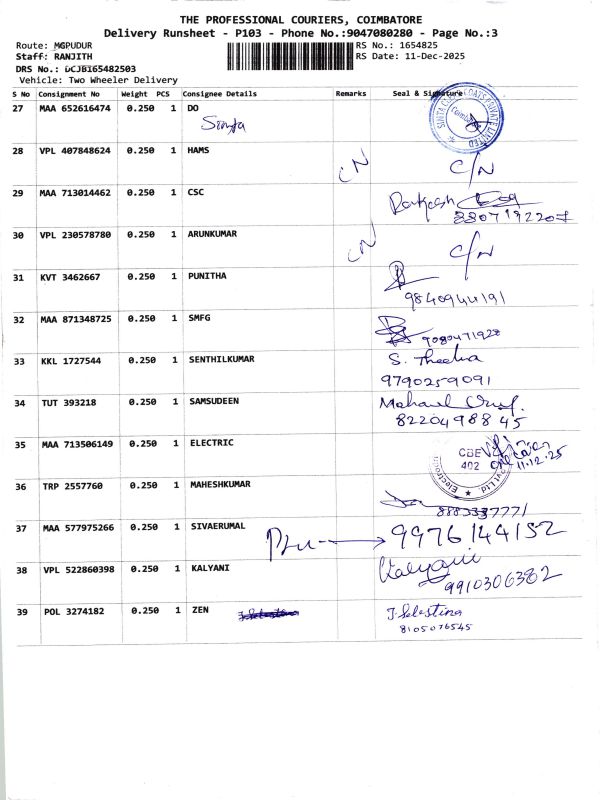 THE PROFESSIONAL COURIERS, COIMBATORE
Delivery Runsheet - P103 - Phone No.:9047080280 - Page No.:3
Route: MGPUDUR
RS No.: 1654825
Staff: RANJITH
RS Date: 11-Dec-2025
DRS No.: DCJB165482503
Vehicle: Two Wheeler Delivery
S No Consignment No Weight PCS Consignee Details Remarks Seal & Signature
27 MAA 652616474 0.250 1 DO
28 VPL 407848624 0.250 1 HAMS CN C/N
29 MAA 713014462 0.250 1 CSC
8807192207
30 VPL 230578780 0.250 1 ARUNKUMAR CN C/N
31 KVT 3462667 0.250 1 PUNITHA
9840944191
32 MAA 871348725 0.250 1 SMFG
9080471928
33 KKL 1727544 0.250 1 SENTHILKUMAR S. Theeka
9790259091
34 TUT 393218 0.250 1 SAMSUDEEN
8220498845
35 MAA 713506149 0.250 1 ELECTRIC
CBE
402
11.12.25
36 TRP 2557760 0.250 1 MAHESHKUMAR
37 MAA 577975266 0.250 1 SIVAERUMAL
9976144152
38 VPL 522860398 0.250 1 KALYANI Kalyani
9910306382
39 POL 3274182 0.250 1 ZEN J. Selestina
8105076545